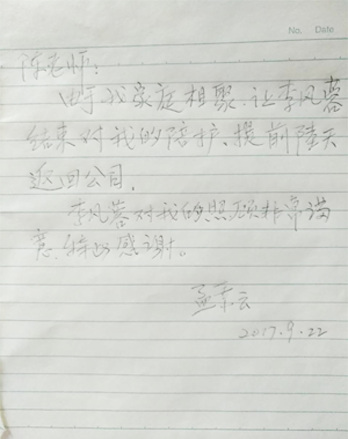 No.    Date
陈老师:
由于我家庭相聚,让李凤蓉
结束对我的陪护、提前陆天
返回公司.
李凤蓉对我的照顾非常满
意.特此感谢。
孟云
2017.9.22